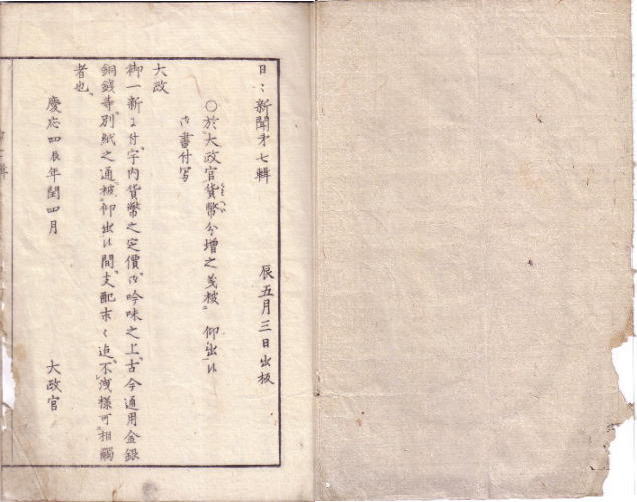 日々新聞第七輯　辰五月三日出板
○於大政官貨幣分増之義被　仰出候
御書付写
大政
御一新ニ付、宇内貨幣之定價御吟味之上、古今通用金銀
銅銭等、別紙之通被　仰出候間、支配末々迄、不洩様可相觸
者也、
慶応四辰年閏四月
大政官